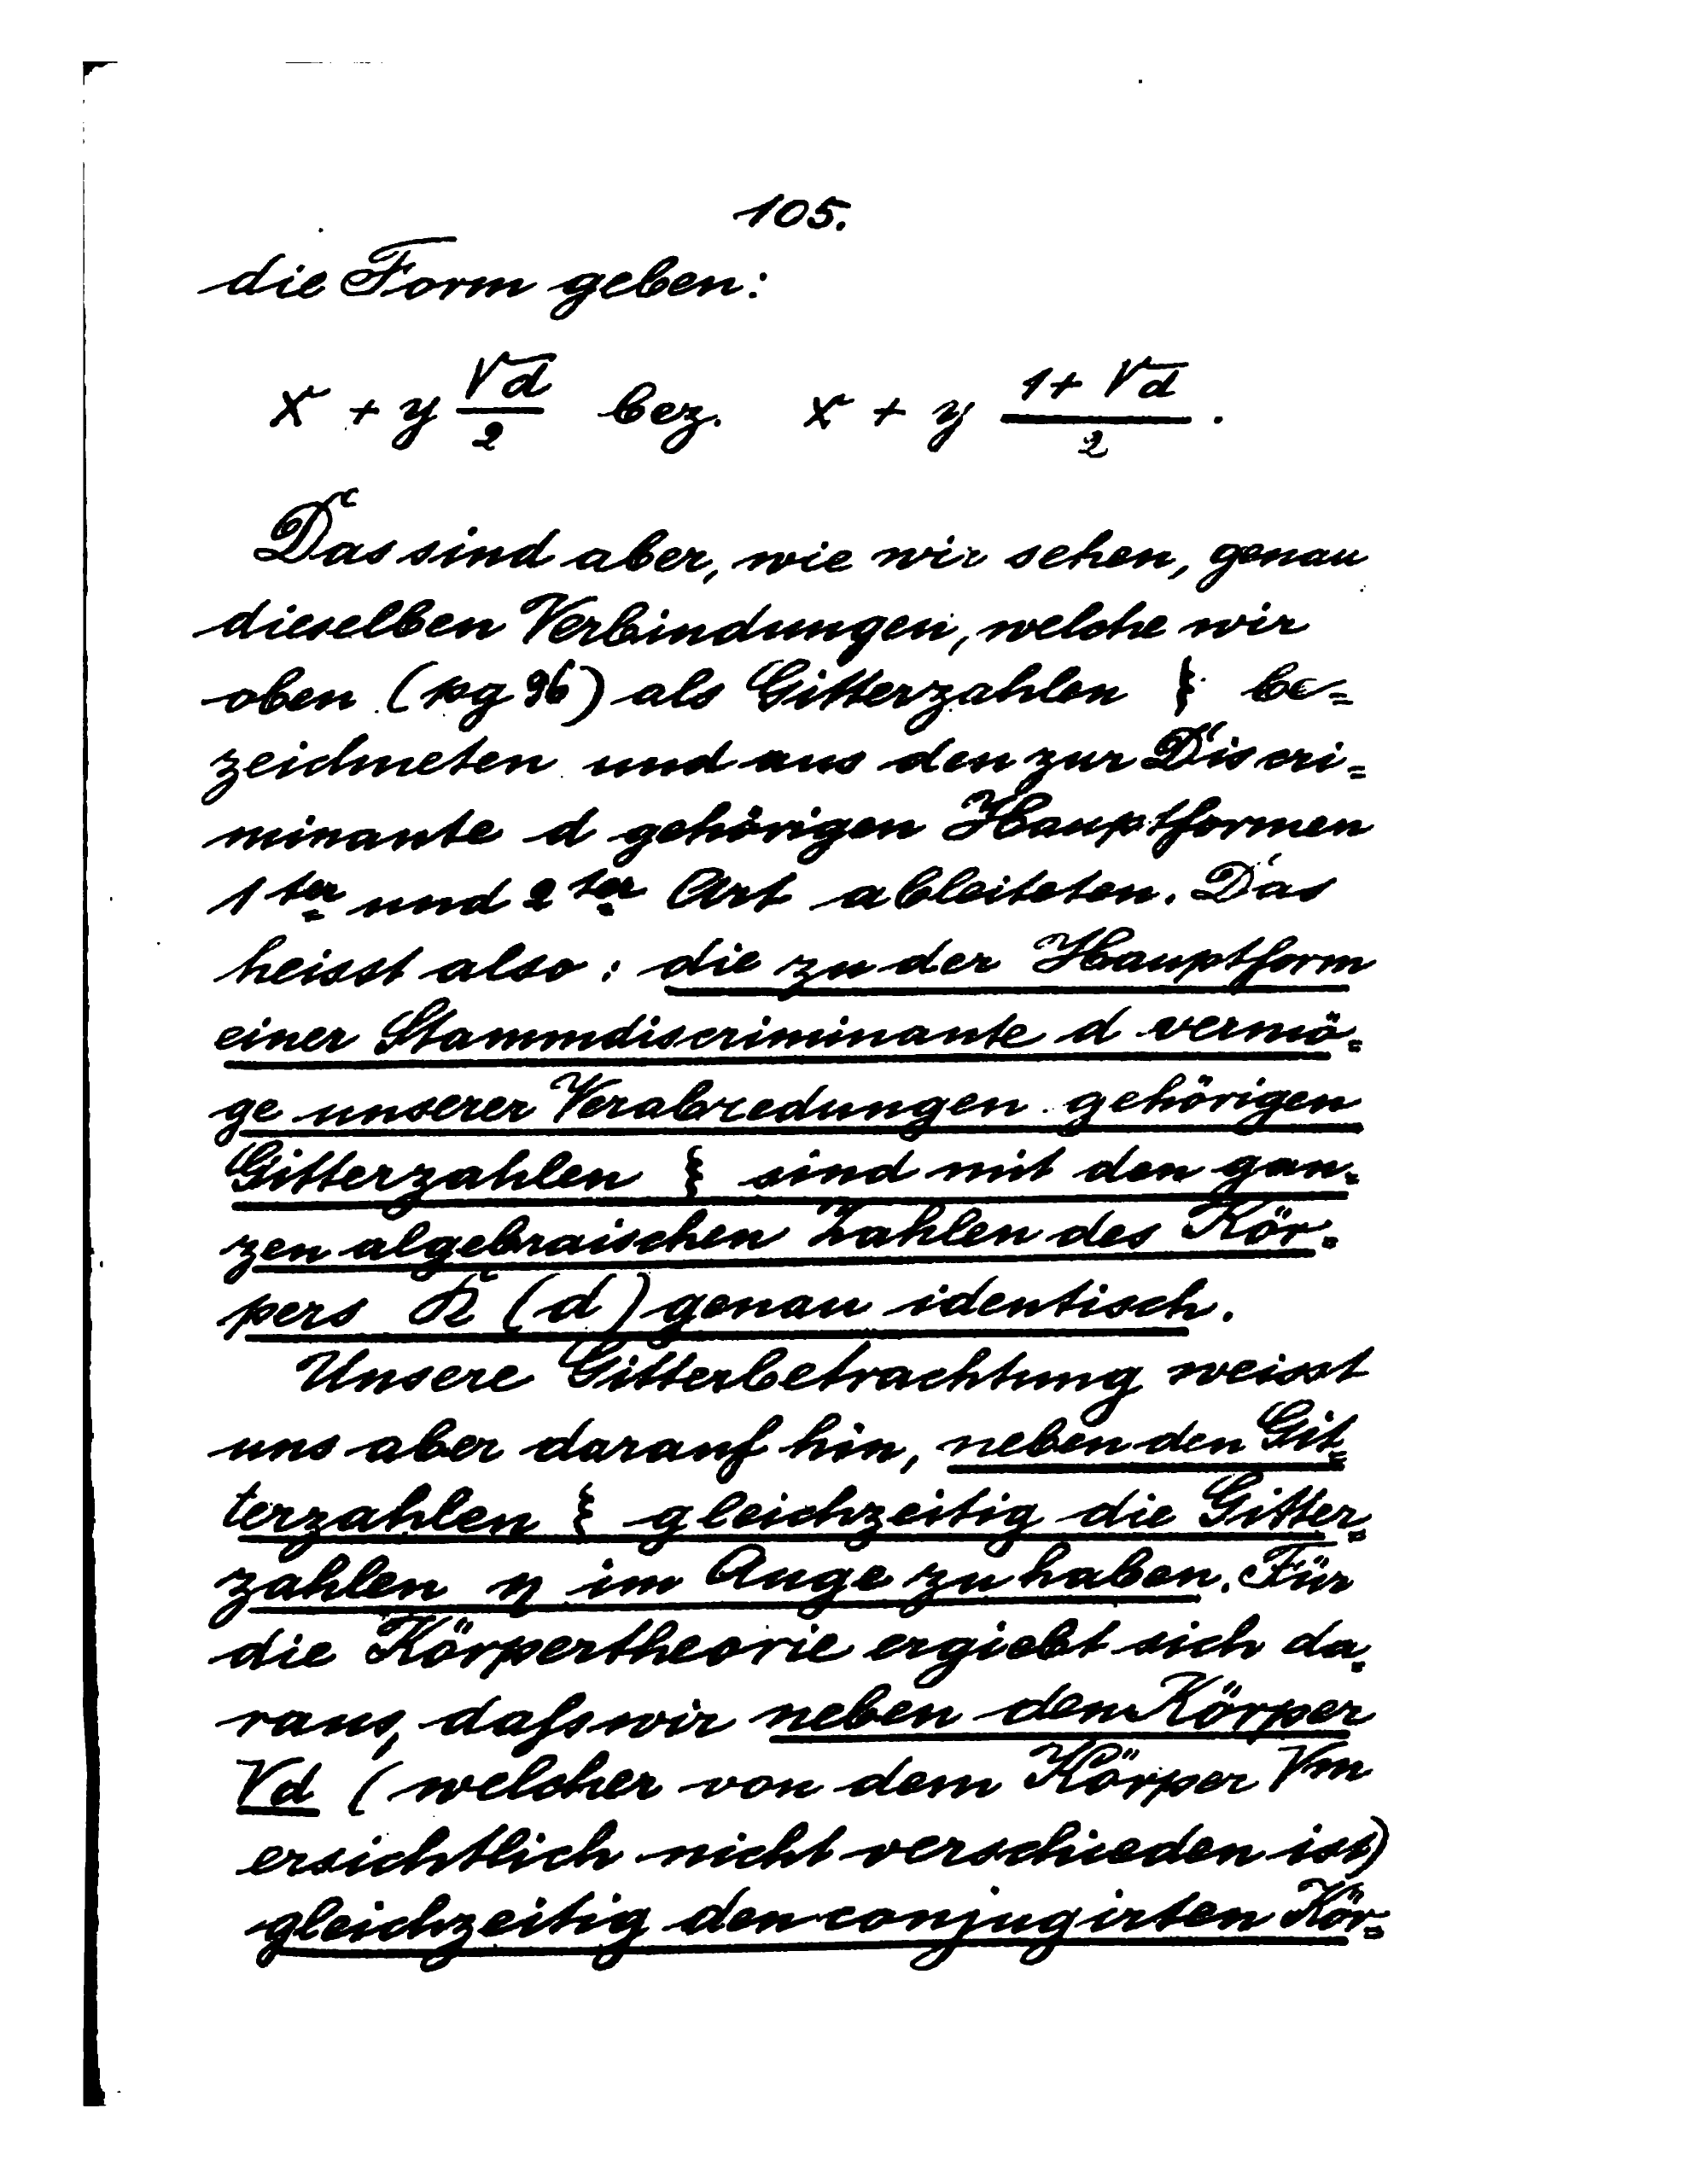 105.
die Form geben:
x + y √d/2 bez. x + y (1+√d)/2 .
Das sind aber, wie wir sehen, genau
dieselben Verbindungen, welche wir
oben (pg 96) als Gitterzahlen ξ be=
zeichneten und aus den zur Discri=
minante d gehörigen Hauptformen
1ter und 2ter Art ableiteten. Das
heisst also: die zu der Hauptform
einer Stammdiscriminante d vermö=
ge unserer Verabredungen gehörigen
Gitterzahlen ξ sind mit den gan=
zen algebraischen Zahlen des Kör=
pers K (d) genau identisch.
Unsere Gitterbetrachtung weisst
uns aber darauf hin, neben den Git=
terzahlen ξ gleichzeitig die Gitter=
zahlen η im Auge zu haben. Für
die Körpertheorie ergiebt sich da=
raus, dafs wir neben dem Körper
√d (welcher von dem Körper √m
ersichtlich nicht verschieden ist)
gleichzeitig den conjugirten Kör=